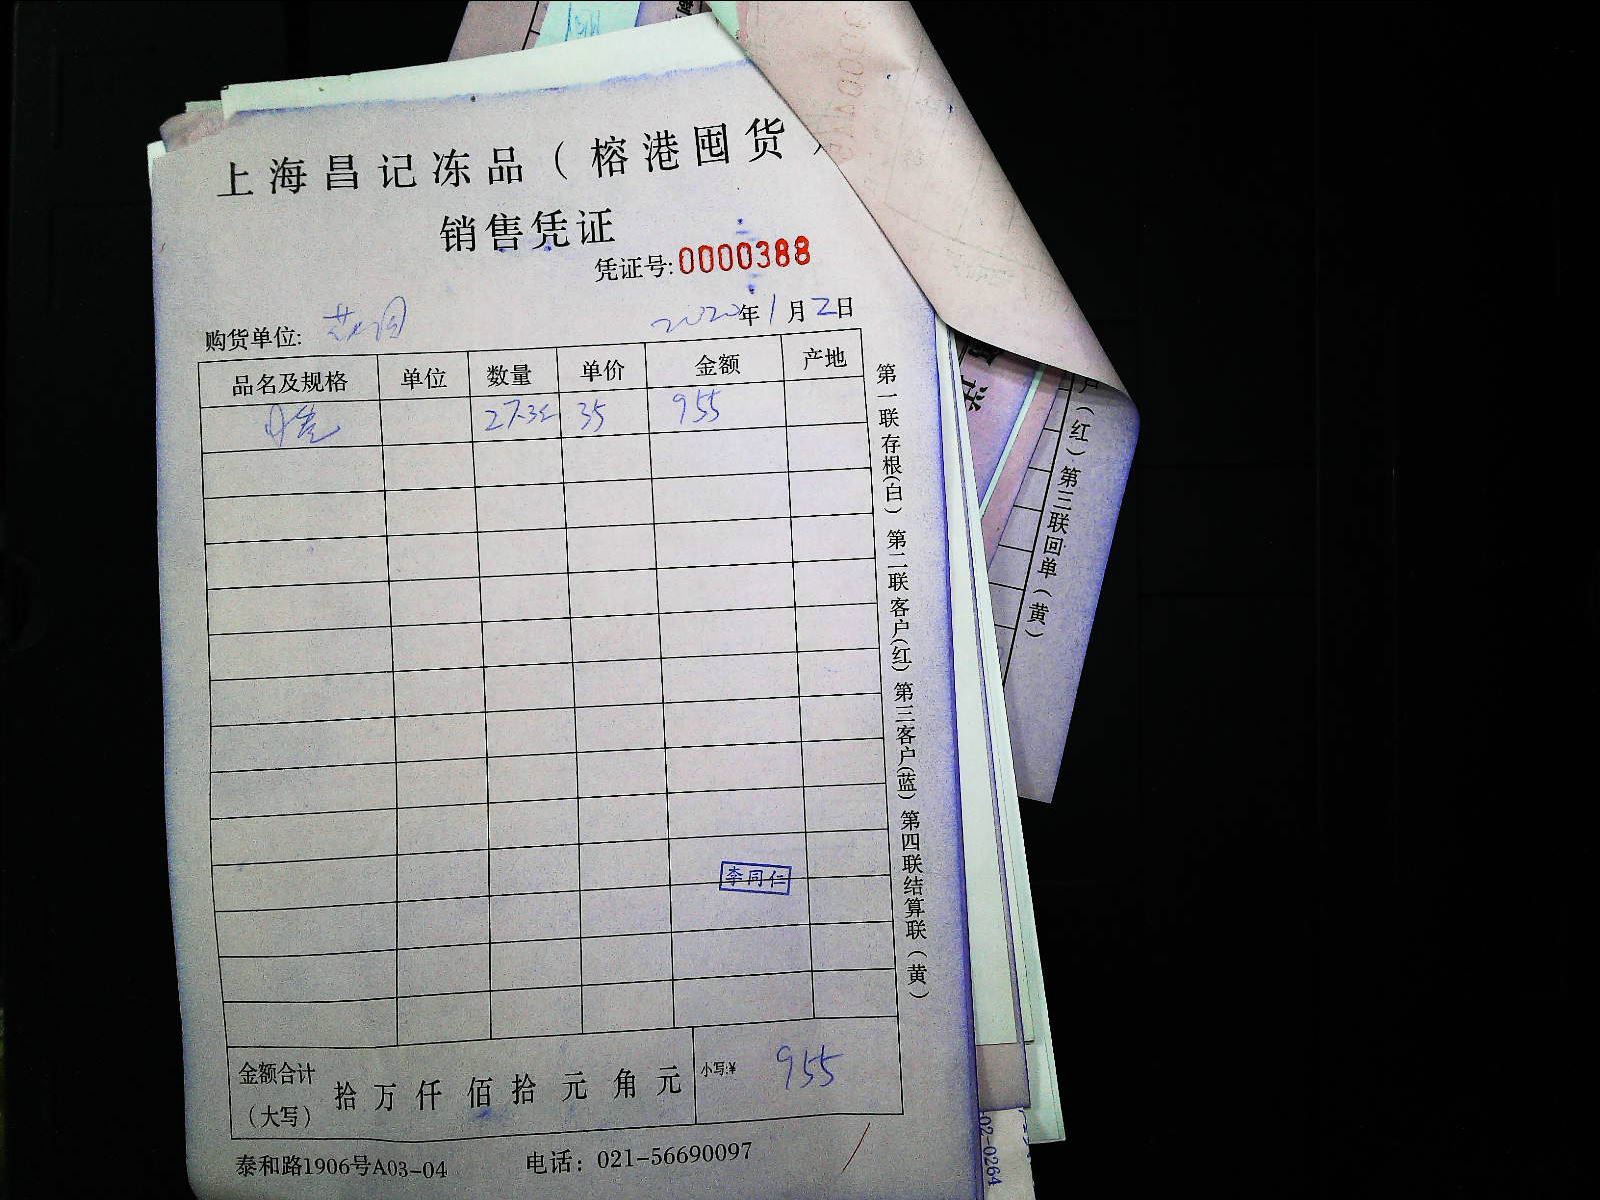 上海昌记冻品(榕港囤货)
销售凭证
凭证号:0000388
购货单位:
2020年1月2日
品名及规格 单位 数量 单价 金额 产地
27.3 35 955
李同仁
金额合计(大写) 拾 万 仟 佰 拾 元 角 元 小写:¥ 955
泰和路1906号A03-04 电话:021-56690097
第一联存根(白) 第二联客户(红) 第三客户(蓝) 第四联结算联(黄)
户(红) 第三联回单(黄)
02-0264